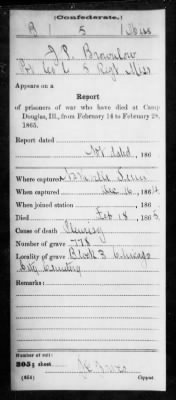 (Confederate.)
B 5 Miss
J. P. Brownlow
Pvt Co C, 5 Regt Miss
Appears on a
Report
of prisoners of war who have died at Camp
Douglas, Ill., from February 14 to February 28,
1865.
Report dated
Not dated, 186
Where captured Nashville Tenn
When captured Dec 16, 1864
When joined station , 186
Died Feb 18, 1865
Cause of death Pleurisy
Number of grave 778
Locality of grave Block 3 Chicago
City Cemetery
Remarks:
Number of roll:
305; sheet
(654) Copyist.